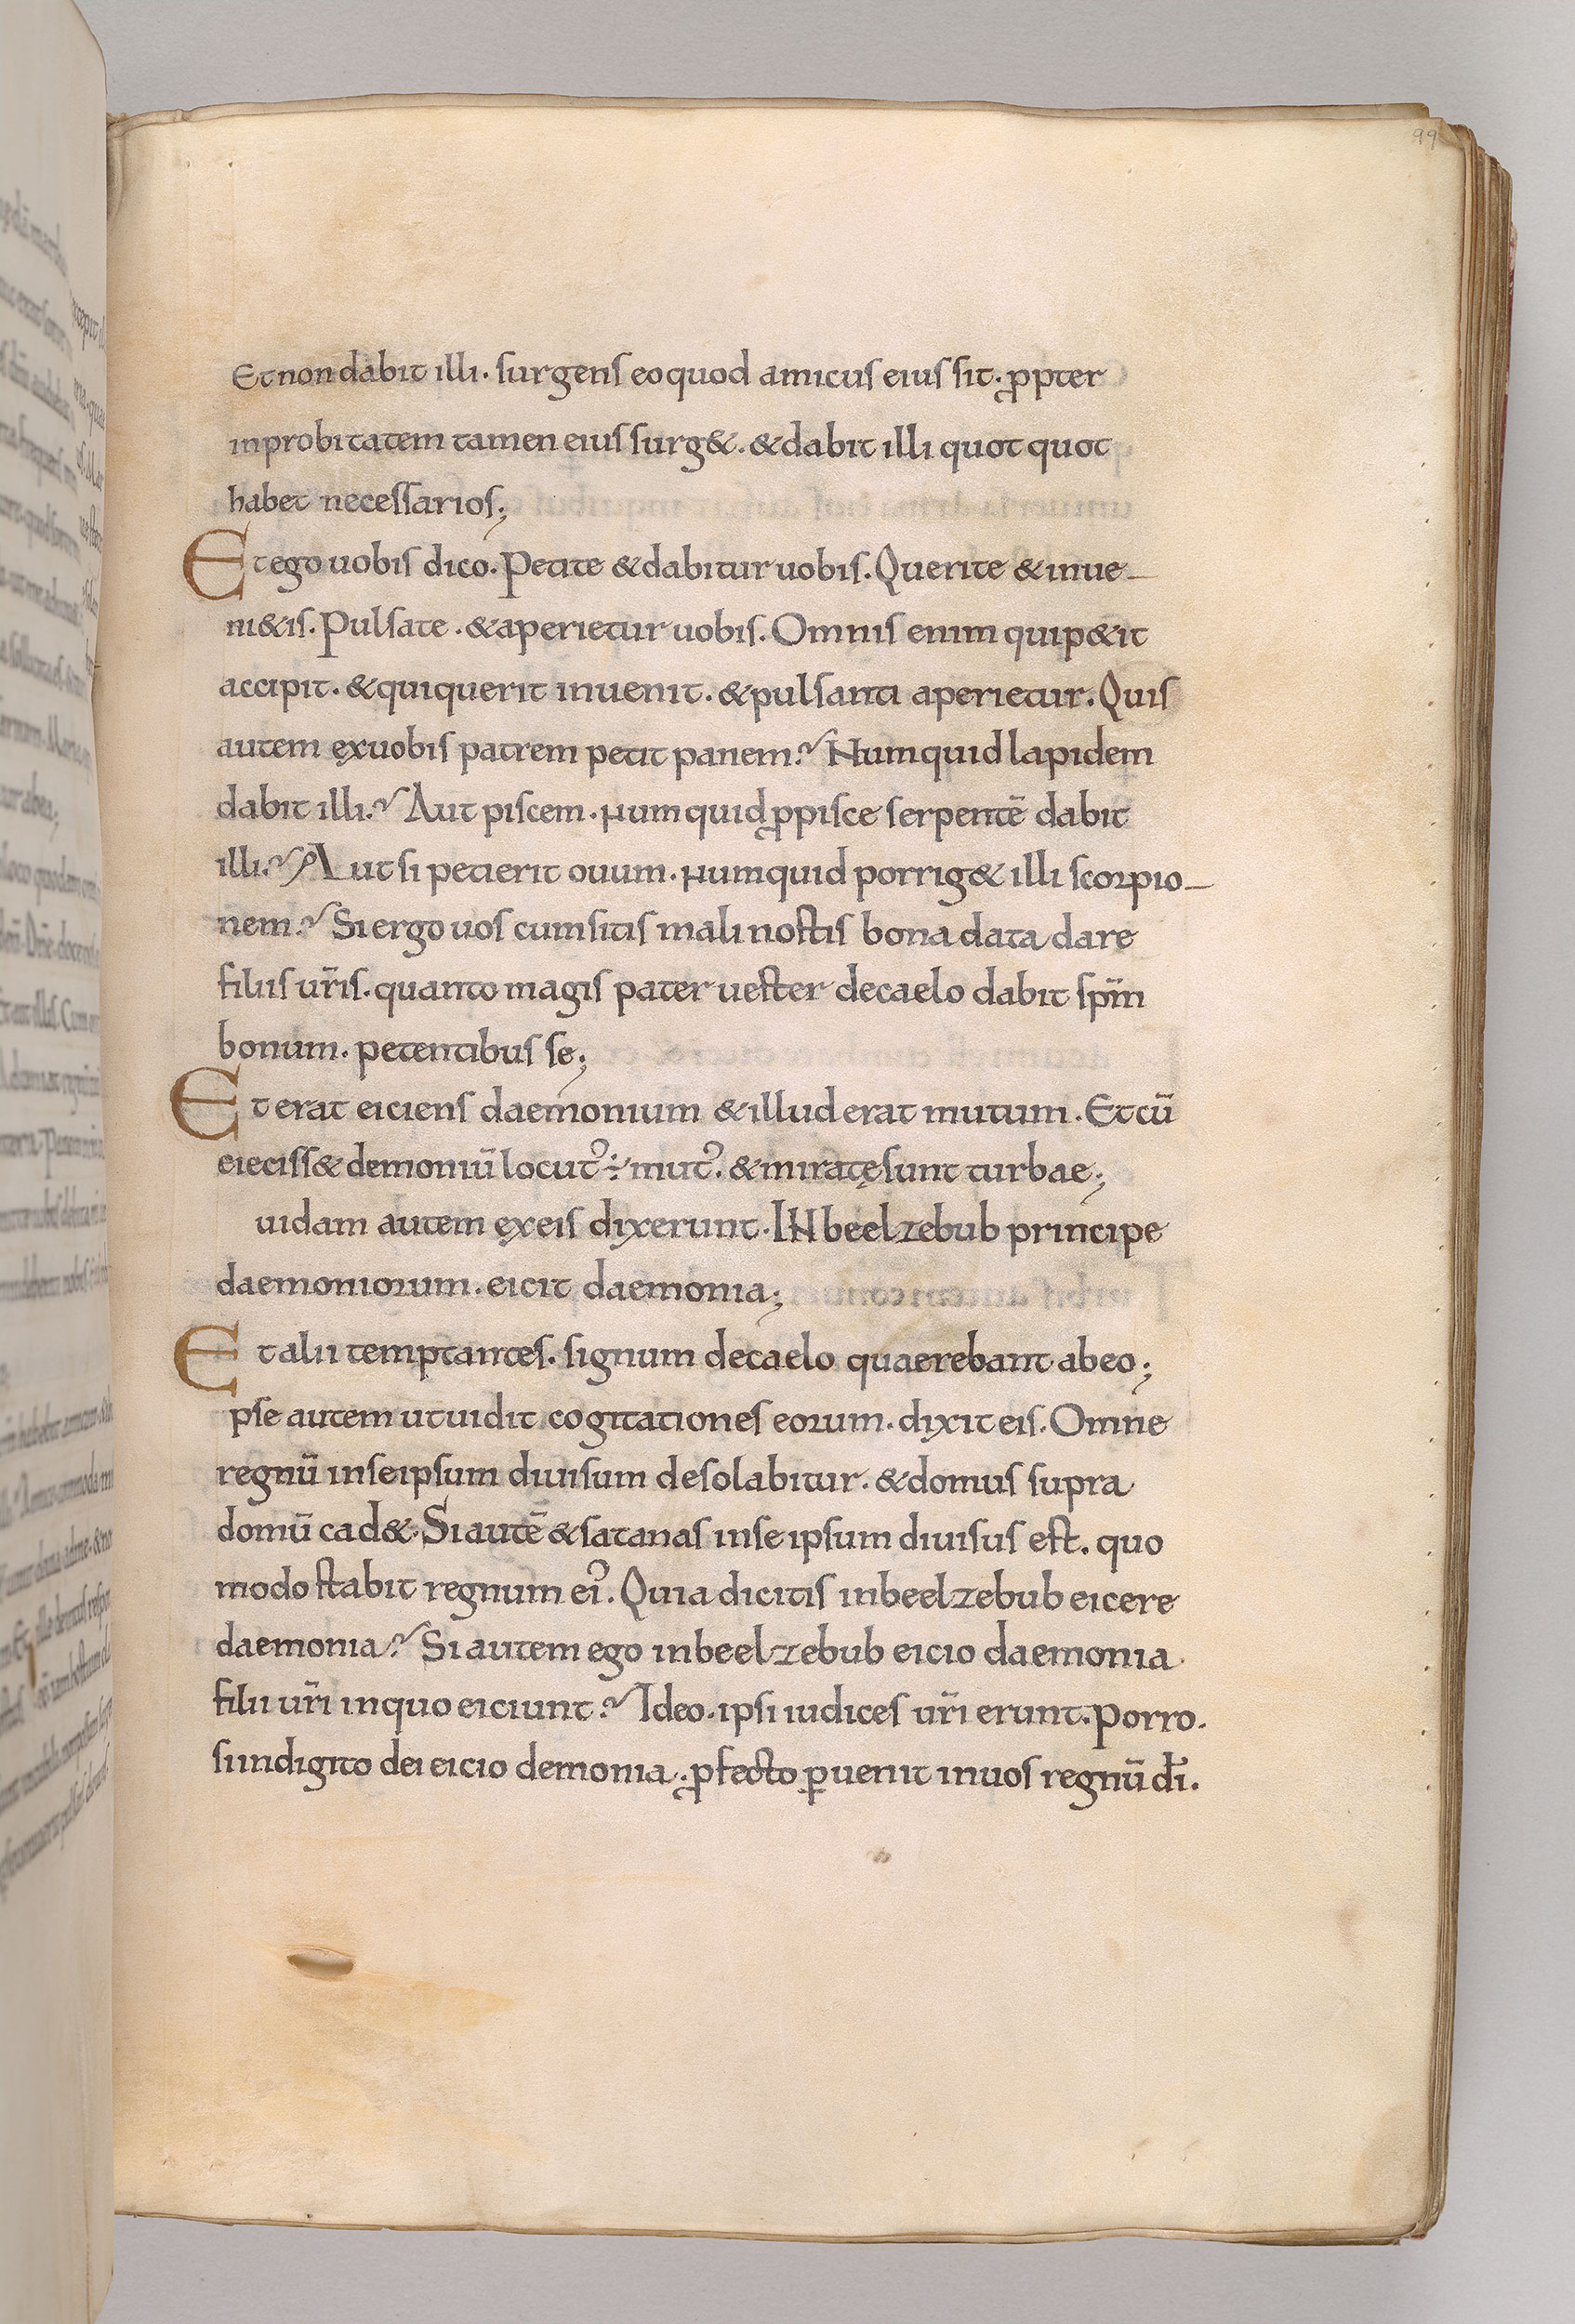 99
Et non dabit illi. surgens eo quod amicus eius sit. ꝓpter
inprobitatem tamen eius surg&. & dabit illi quot quot
habet necessarios;
Et ego uobis dico. Petite & dabitur uobis. Querite & inue-
ni&is. Pulsate. & aperietur uobis. Omnis enim qui p&it
accipit. & qui querit inuenit. & pulsanti aperietur. Quis
autem ex uobis patrem petit panem? Numquid lapidem
dabit illi? Aut piscem. numquid ꝓ pisce serpentē dabit
illi? Aut si petierit ouum. numquid porrig& illi scorpio-
nem? Si ergo uos cum sitis mali nostis bona data dare
filiis ur̄is. quanto magis pater uester de caelo dabit sp̄m
bonum. petentibus se;
Et erat eiciens daemonium & illud erat mutum. Et cū
eieciss& demoniū locutꝰ ÷ mutꝰ. & miratę sunt turbae;
uidam autem ex eis dixerunt. IN beelzebub principe
daemoniorum. eicit daemonia;
Et alii temptantes. signum de caelo quaerebant ab eo;
pse autem ut uidit cogitationes eorum. dixit eis. Omne
regnū in se ipsum diuisum desolabitur. & domus supra
domū cad&. Si autē & satanas in se ipsum diuisus est. quo
modo stabit regnum eiꝰ. Quia dicitis in beelzebub eicere
daemonia? Si autem ego in beelzebub eicio daemonia
filii ur̄i in quo eiciunt? Ideo. ipsi iudices ur̄i erunt. Porro.
si in digito dei eicio demonia. ꝓfecto ꝑuenit in uos regnū dī.